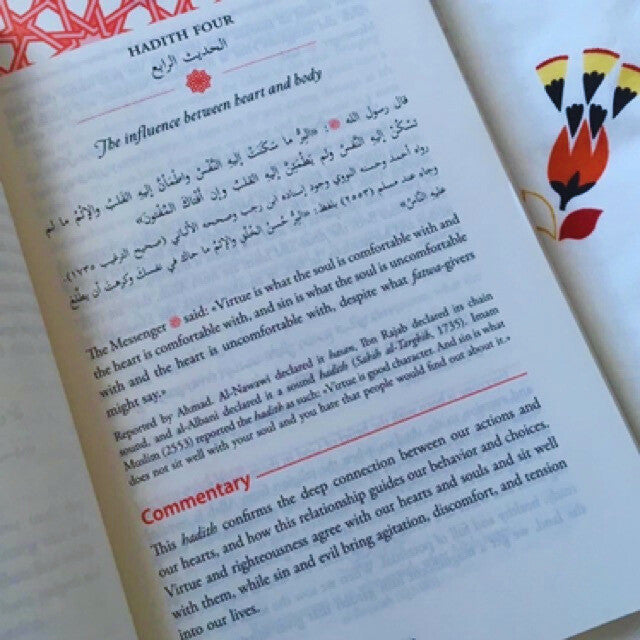 HADITH FOUR
الحديث الرابع
The influence between heart and body
قال رسول الله ﷺ: «البِرُّ ما سَكَنَتْ إليه النَّفْسُ واطْمَأَنَّ إليه القَلْبُ والإِثْمُ ما لم
تَسْكُنْ إليه النَّفْسُ ولم يَطْمَئِنَّ إليه القَلْبُ وإن أَفْتَاكَ المُفْتُونَ»
رواه أحمد وحسنه النووي وجود إسناده ابن رجب وصححه الألباني (صحيح الترغيب ١٧٣٥).
وجاء عند مسلم (٢٥٥٣) بلفظ: «البِرُّ حُسْنُ الخُلُقِ والإِثْمُ ما حَاكَ في نفسك وكَرِهْتَ أن يطَّلِعَ
عليه النَّاسُ»
The Messenger ﷺ said: «Virtue is what the soul is comfortable with and
the heart is comfortable with, and sin is what the soul is uncomfortable
with and the heart is uncomfortable with, despite what fatwa-givers
might say.»
Reported by Ahmad. Al-Nawawi declared is hasan, Ibn Rajab declared its chain
sound, and al-Albani declared is a sound hadith (Sahih al-Targhib, 1735). Imam
Muslim (2553) reported the hadith as such: «Virtue is good character. And sin is what
does not sit well with your soul and you hate that people would find our about it.»
Commentary
This hadith confirms the deep connection between our actions and
our hearts, and how this relationship guides our behavior and choices.
Virtue and righteousness agree with our hearts and souls and sit well
with them, while sin and evil bring agitation, discomfort, and tension
into our lives.